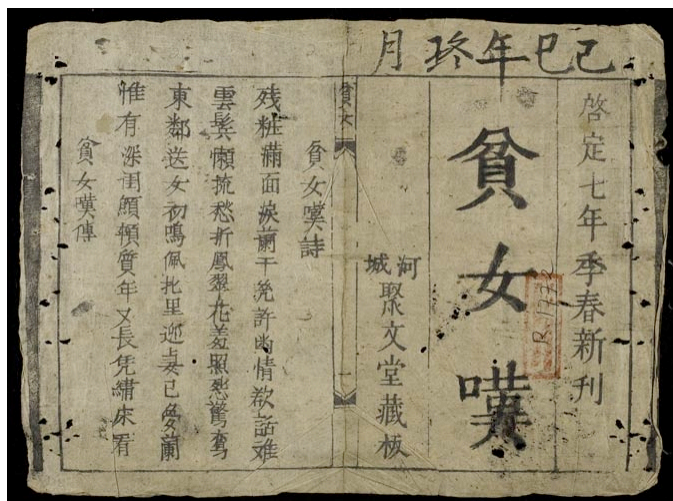 己巳年月
啓定七年季春新刊
貧女嘆
河城
聚文堂藏板
貧女
一
貧女嘆詩
残粧滿面淚蘭干許幽情欲話难
雲髻懶梳愁折鳳翠花羞照恐驚鸞
東鄰送女初鳴佩北里迎妻已夢蘭
惟有深閨顦顇質年又長凭綉床看
貧女嘆傳